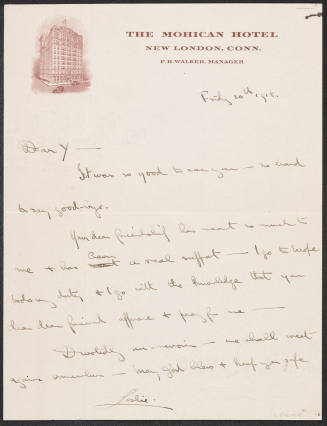 THE MOHICAN HOTEL
NEW LONDON, CONN.
F. B. WALKER, MANAGER
20th 1918.
Dear Y —
It was so good to see you — so hard
to say good-bye.
Your dear friendship has meant so much to
me & has been a real support — I go to
do my duty & I go with the knowledge that you
dear friend & pray for me —
au-revoir — we shall meet
again somewhere — May God bless & keep you safe
Leslie.